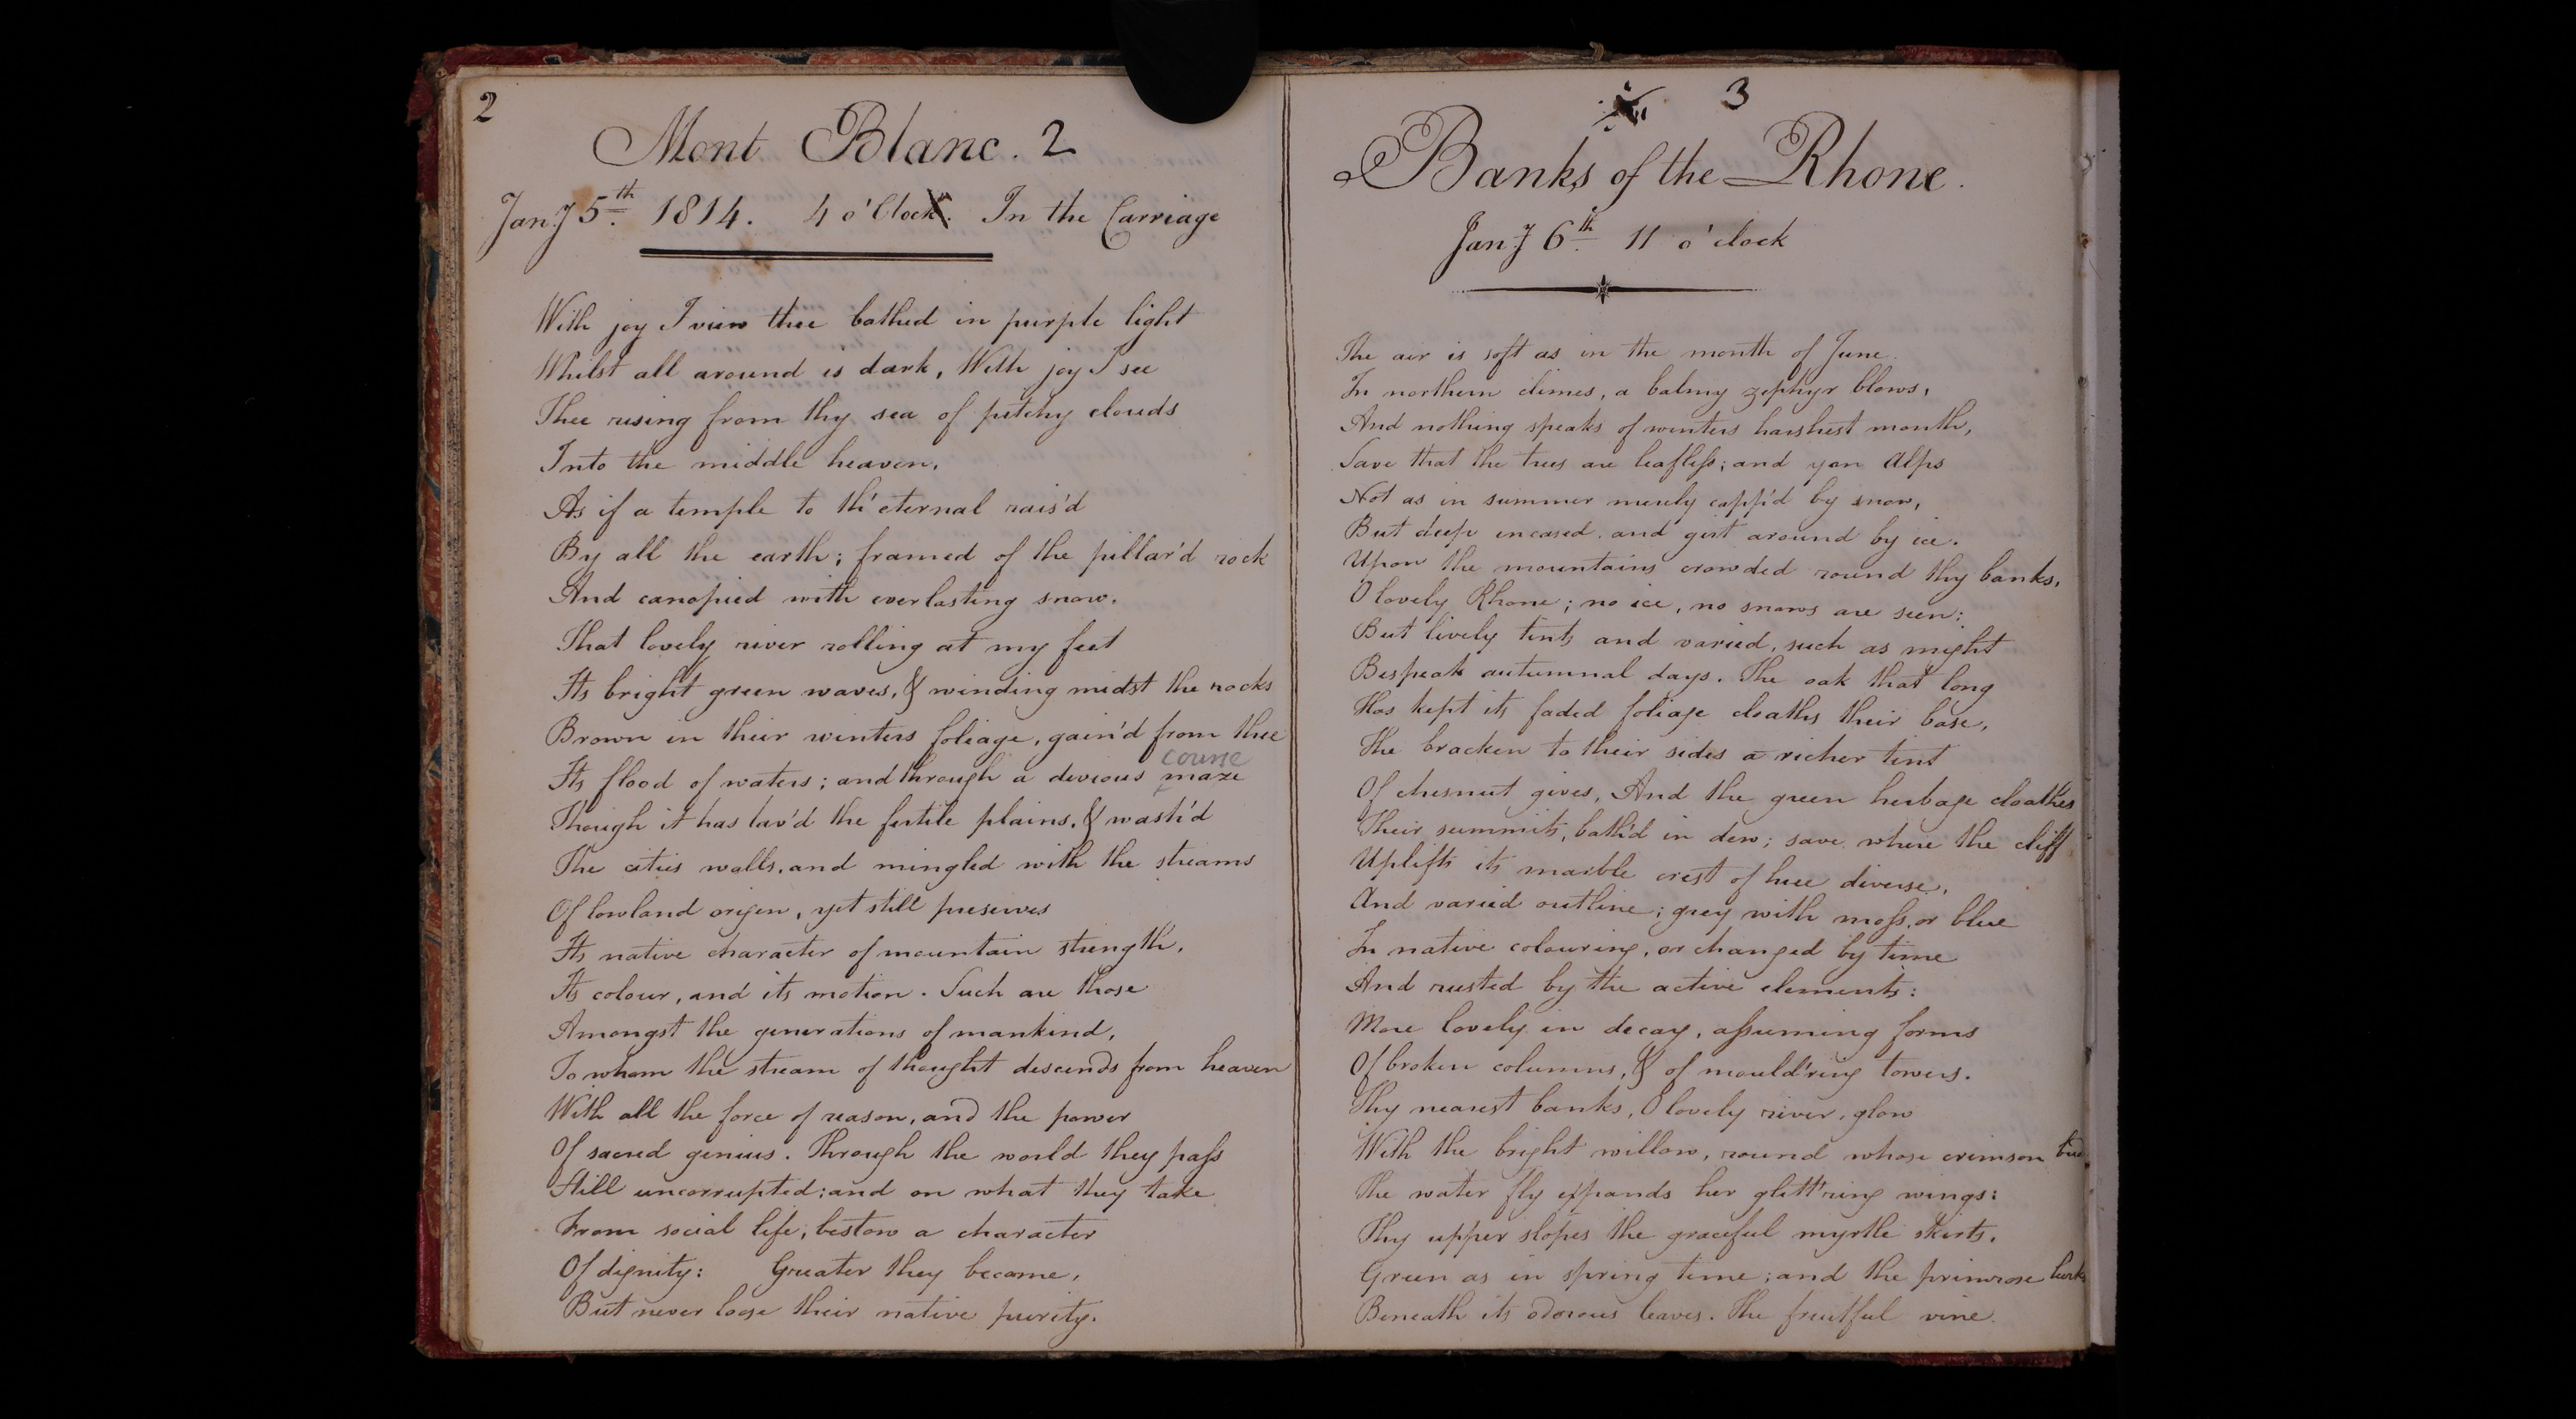 2
Mont Blanc. 2
Jany 5th. 1814. 4 o'Clock. In the Carriage
With joy I view thee bathed in purple light
Whilst all around is dark, With joy I see
Thee rising from thy sea of pitchy clouds
Into the middle heaven,
As if a temple to th' eternal rais'd
By all the earth; framed of the pillar'd rock
And canopied with everlasting snow.
That lovely river rolling at my feet
Its bright green waves, & winding midst the rocks
Brown in their winters foliage, gain'd from thee
course
Its flood of waters; and through a devious maze
Though it has lav'd the fertile plains, & wash'd
The cities walls, and mingled with the streams
Of lowland origen, yet still preserves
Its native character of mountain strength,
Its colour, and its motion. Such are those
Amongst the generations of mankind,
To whom the stream of thought descends from heaven
With all the force of reason, and the power
Of sacred genius. Through the world they pass
Still uncorrupted; and on what they take
From social life, bestow a character
Of dignity: Greater they become,
But never loose their native purity.
3
Banks of the Rhone.
Jany 6th 11 o'clock
The air is soft as in the month of June
In northern climes, a balmy zephyr blows,
And nothing speaks of winters harshest month,
Save that the trees are leafless; and yon Alps
Not as in summer merely capp'd by snow,
But deep incased, and girt around by ice.
Upon the mountains crowded round thy banks,
O lovely Rhone; no ice, no snows are seen:
But lively tints and varied, such as might
Bespeak autumnal days. The oak that long
Has kept its faded foliage cloaths their base,
The bracken to their sides a richer tint
Of chesnut gives, And the green herbage cloathes
Their summits, bath'd in dew; save where the cliff
Uplifts its marble crest of hue diverse,
And varied outline; grey with moss, or blue
In native colouring, or changed by time
And rusted by the active elements:
More lovely in decay, assuming forms
Of broken columns, & of mould'ring towers.
Thy nearest banks, O lovely river, glow
With the bright willow, round whose crimson bud
The water fly expands her glitt'ring wings:
Thy upper slopes the graceful myrtle skirts,
Green as in spring time; and the primrose lurks
Beneath its odorous leaves. The fruitful vine